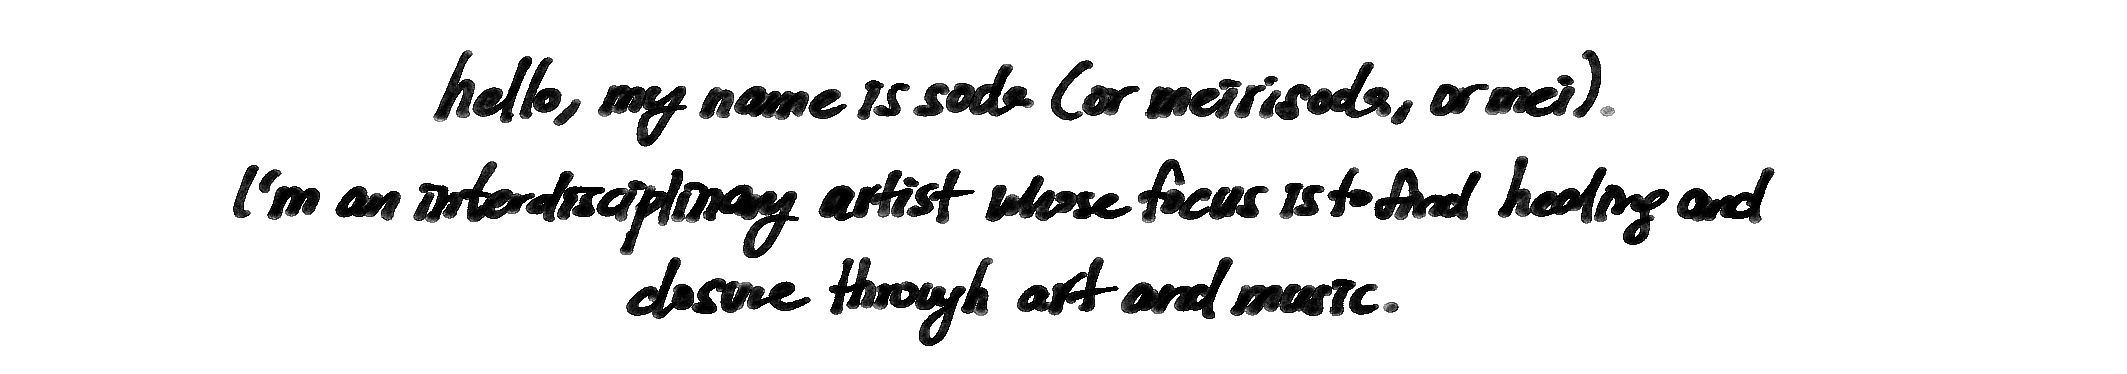 hello, my name is soda (or meirisoda, or mei).
I'm an interdisciplinary artist whose focus is to find healing and
closure through art and music.